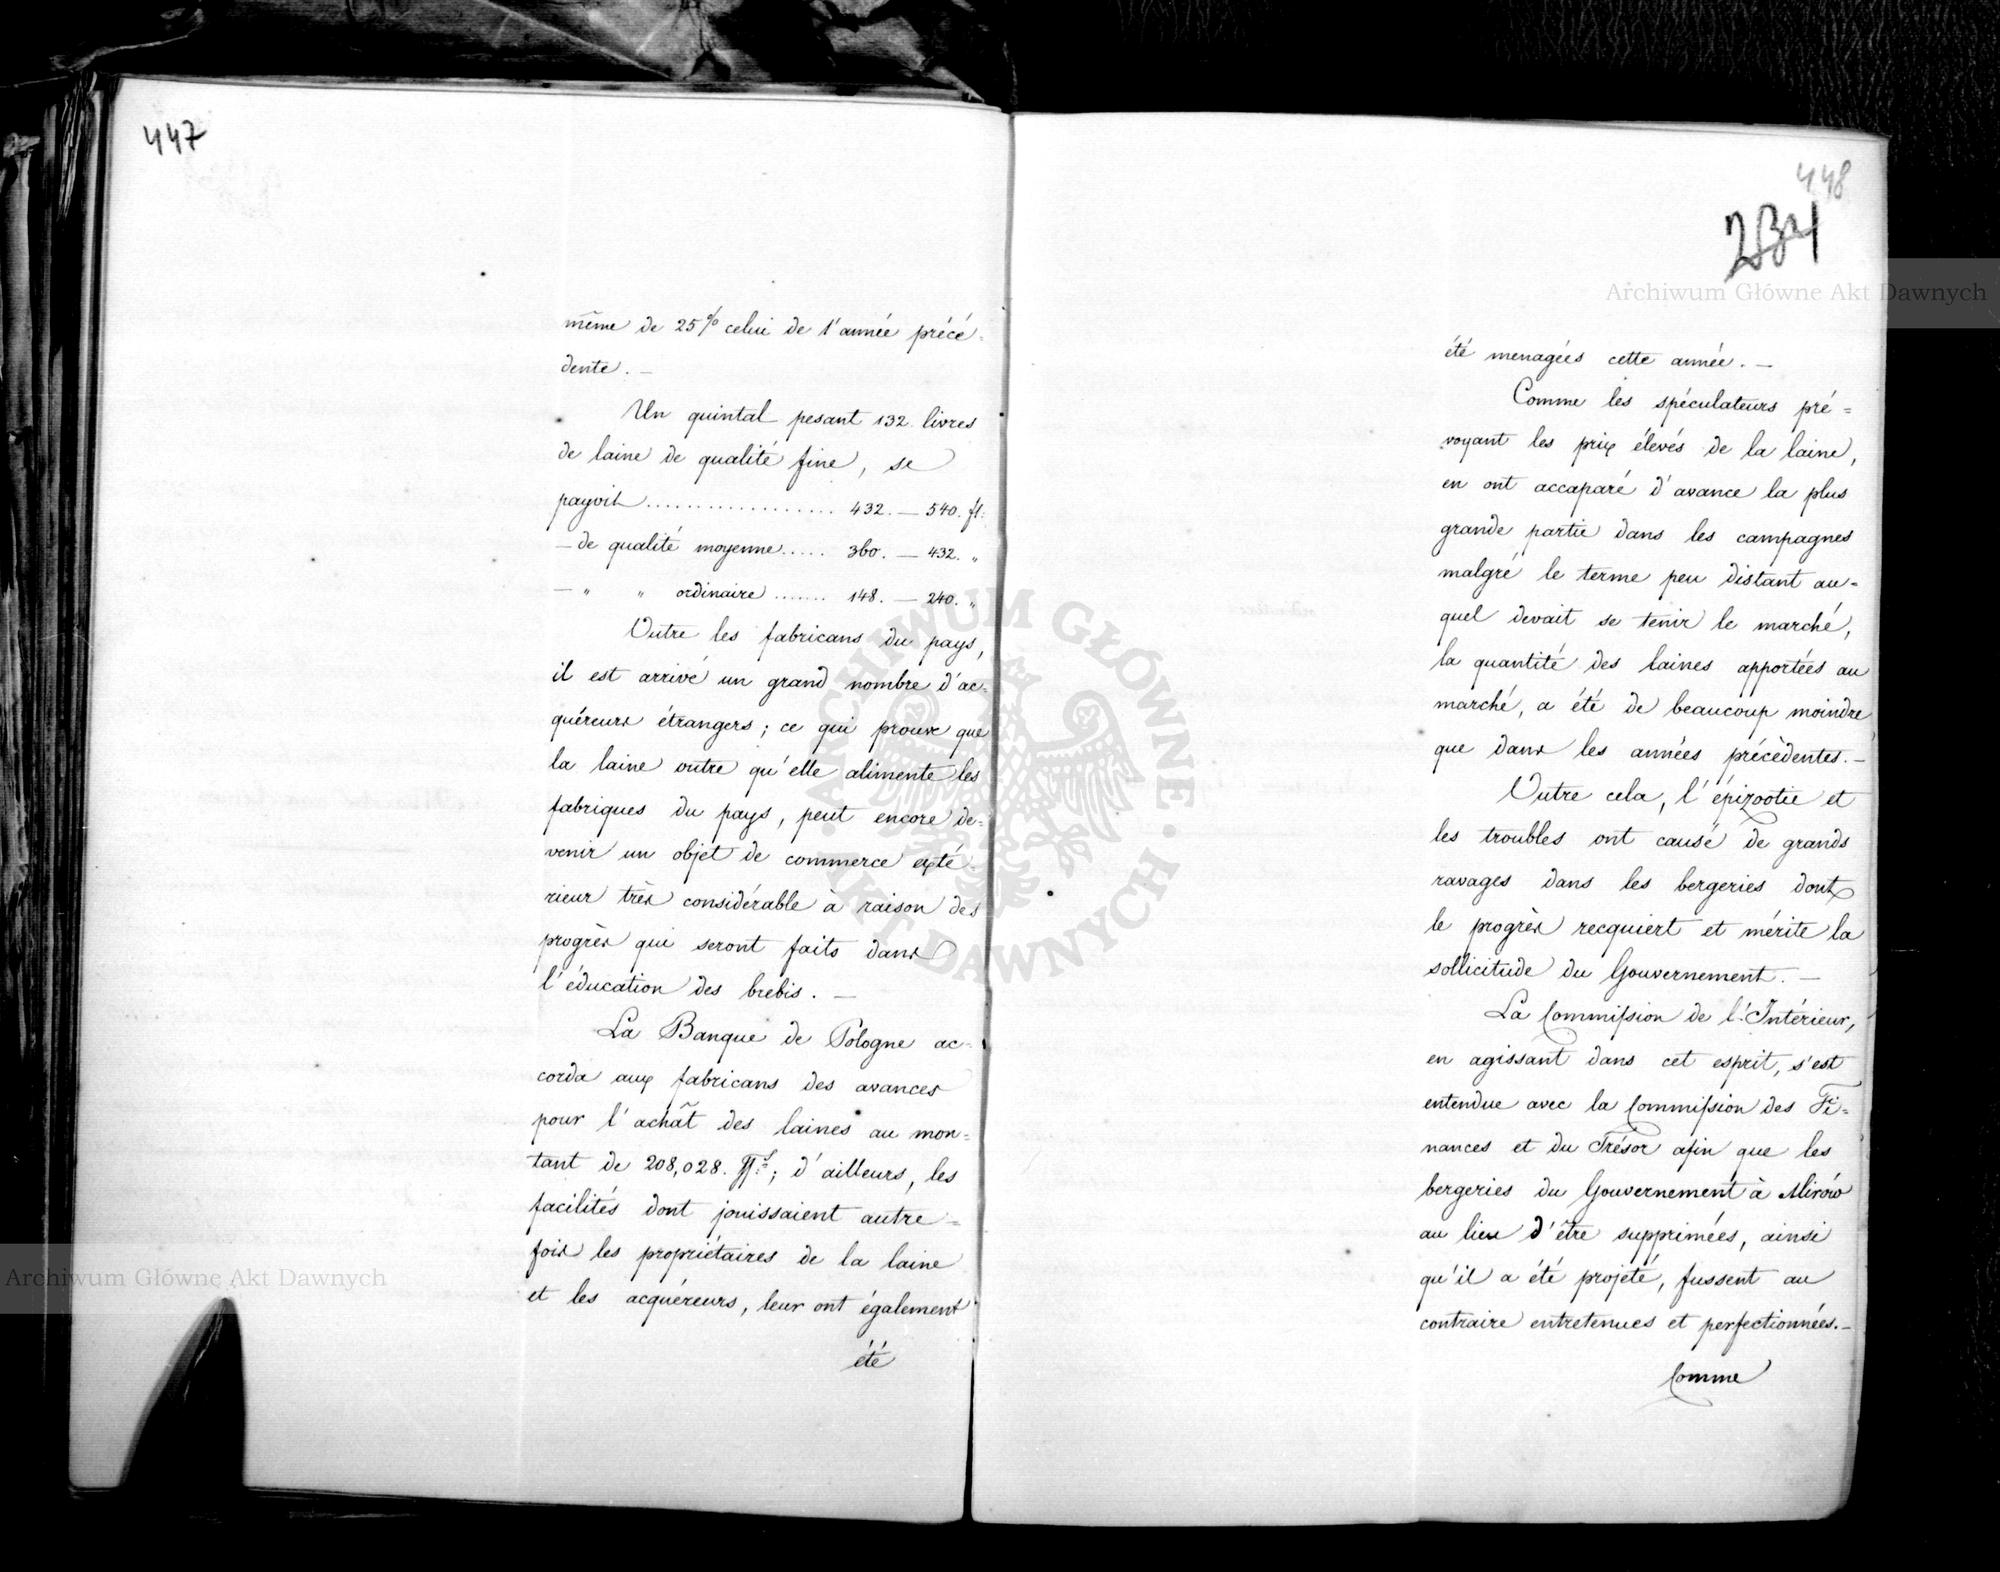 447
même de 25% celui de l'année précé-
dente. —
Un quintal pesant 132 livres
de laine de qualité fine, se
payoit .................. 432. — 540. fl:
— de qualité moyenne ..... 360. — 432. "
— " " ordinaire ....... 148. — 240. "
Outre les fabricans du pays,
il est arrivé un grand nombre d'ac-
quéreurs étrangers; ce qui prouve que
la laine outre qu'elle alimente les
fabriques du pays, peut encore de-
venir un objet de commerce exté-
rieur très considérable à raison des
progrès qui seront faits dans
l'éducation des brebis. —
La Banque de Pologne ac-
corda aux fabricans des avances
pour l'achât des laines au mon-
tant de 208,028. ; d'ailleurs, les
facilités dont jouissaient autre-
fois les propriétaires de la laine
et les acquéreurs, leur ont également
été
448
234
été menagées cette année. —
Comme les spéculateurs pré-
voyant les prix élevés de la laine,
en ont accaparé d'avance la plus
grande partie dans les campagnes
malgré le terme peu distant au-
quel devait se tenir le marché,
la quantité des laines apportées au
marché, a été de beaucoup moindre
que dans les années précèdentes. —
Outre cela, l'épizootie et
les troubles ont causé de grands
ravages dans les bergeries dont
le progrès recquiert et mérite la
sollicitude du Gouvernement. —
La Commission de l'Intérieur,
en agissant dans cet esprit, s'est
entendue avec la Commission des Fi-
nances et du Trésor afin que les
bergeries du Gouvernement à Mirów
au lieu d'être supprimées, ainsi
qu'il a été projeté, fussent au
contraire entretenues et perfectionnées. —
Comme
Archiwum Główne Akt Dawnych
Archiwum Główne Akt Dawnych
ARCHIWUM GŁÓWNE · AKT DAWNYCH ·